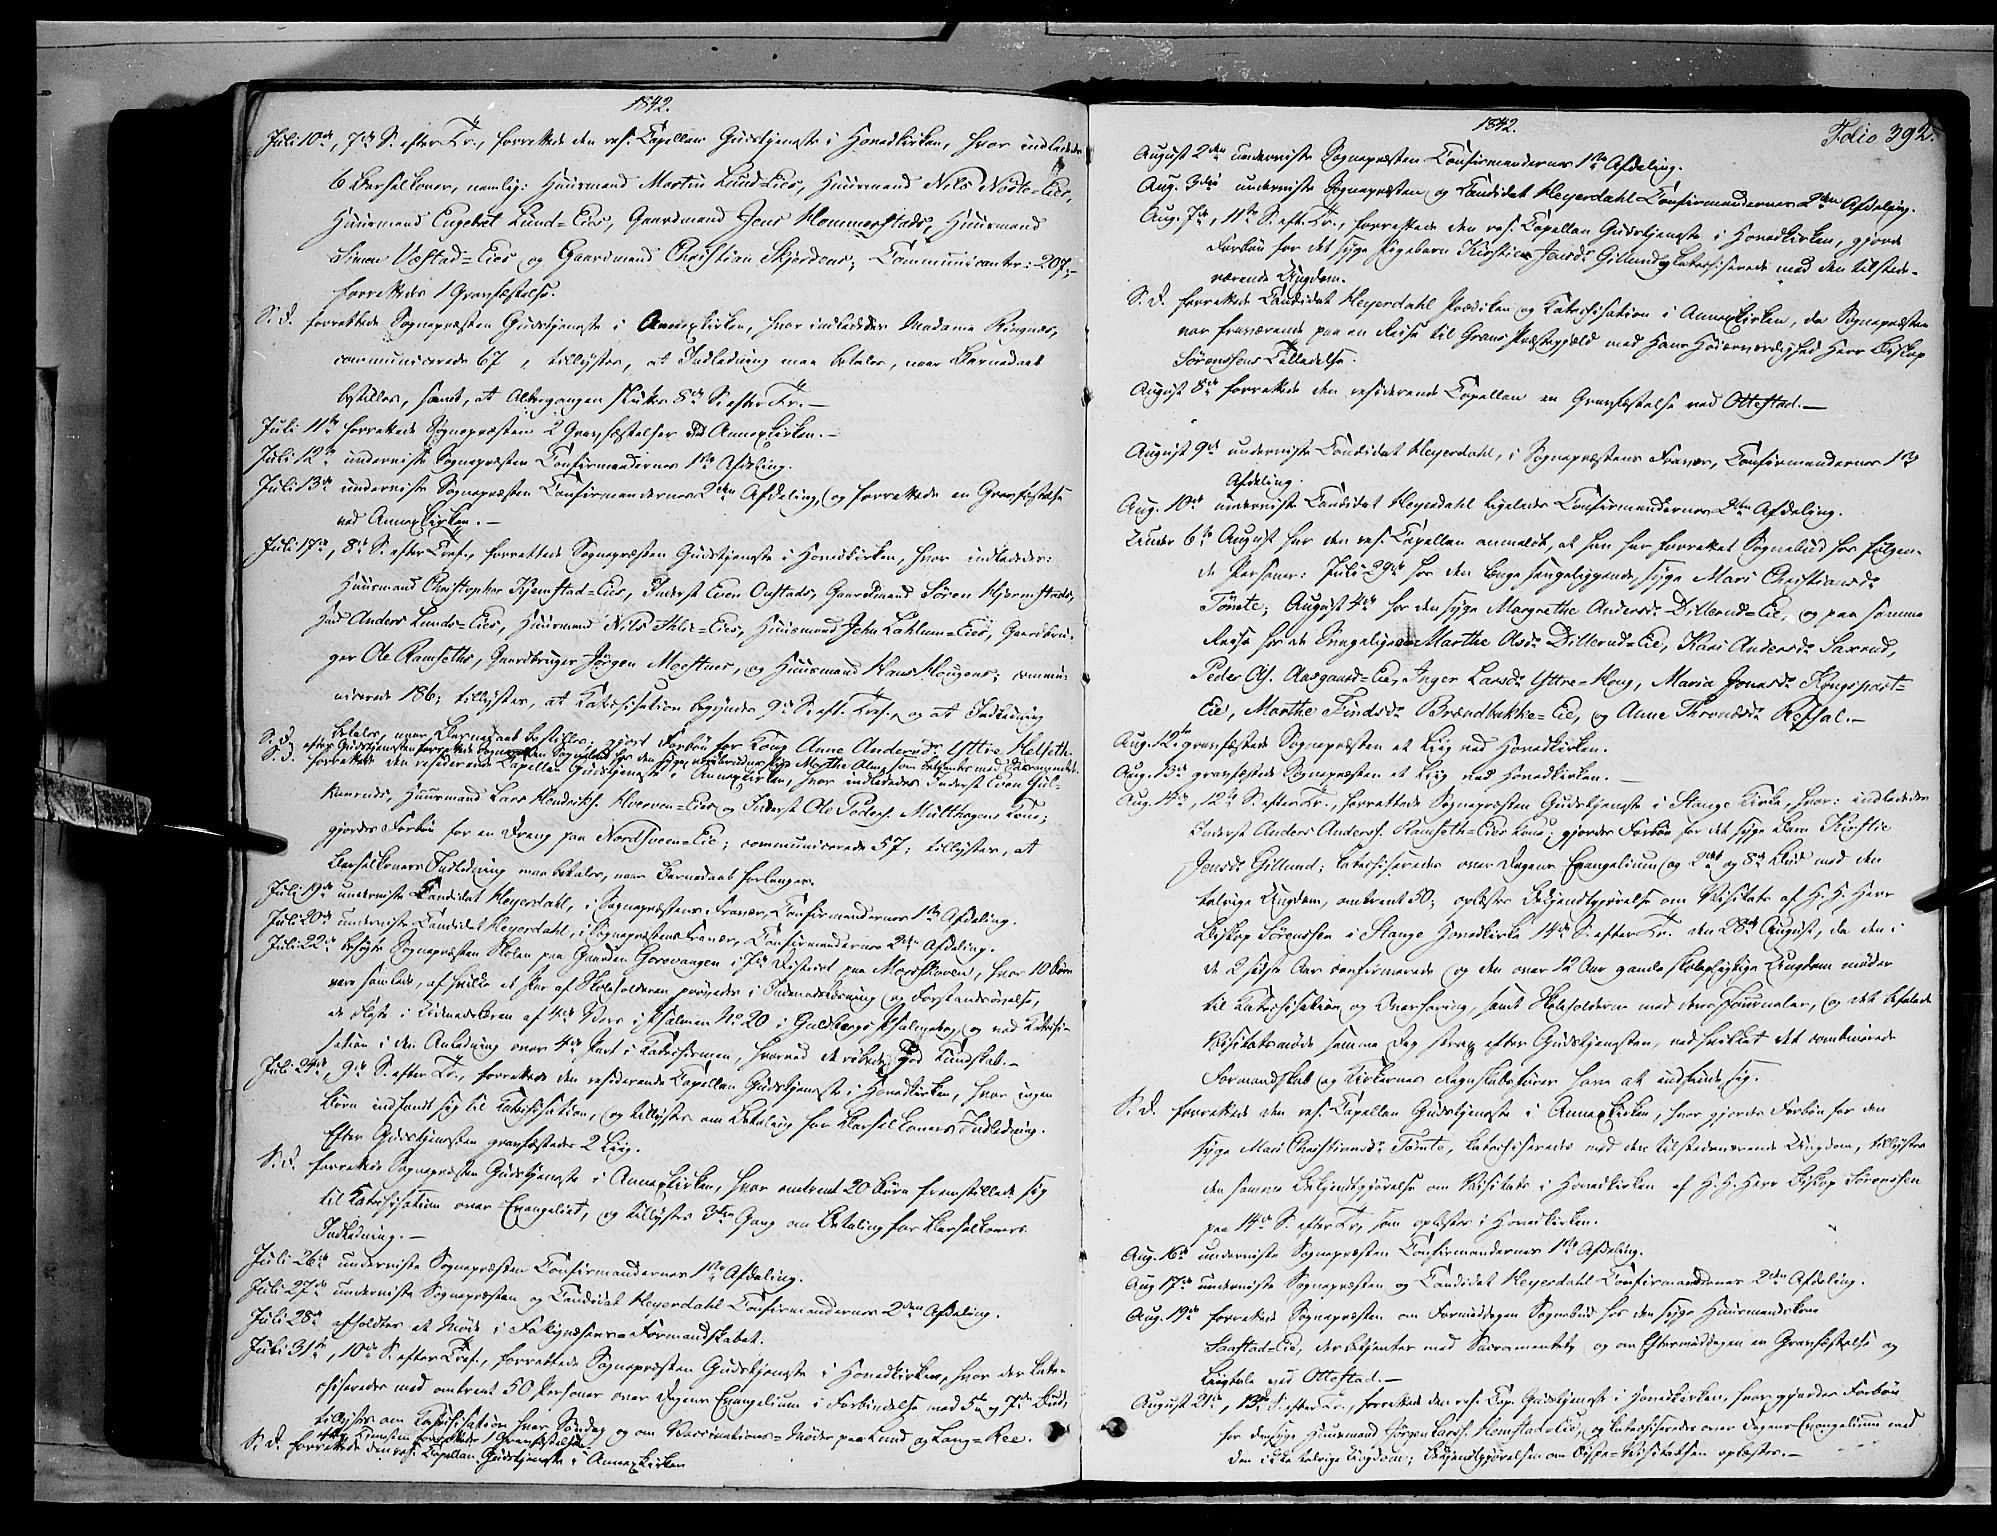 1842.
Juli 10de, 7de S. efter Tr., forrettede den res. Capellan Gudstjeneste i Hovedkirken, hvor indlededes
6 Barselkoner, nemlig: Huusmand Martin Lund-Eies, Huusmand Nils Nødle-Eies,
Huusmand Engebret Lund-Eies, Gaardmand Jens Hommerstads, Huusmand
Simen Væstad-Eies og Gaardmand Christian Skjerdens; Communicanter: 207,
forrettedes 1 Gravfæstelse.
S. D. forrettede Sognepræsten Gudstjeneste i Annexkirken, hvor indlededes Madame Ringnes,
communicerede 67, tillystes, at Indledning maa betales, naar Barnedaab
bestilles, samt, at Altergangen sluttes 8de S. efter Tr. —
Juli 11te forrettede Sognepræsten 2 Gravfæstelser ved Annexkirken. —
Juli 12te underviste Sognepræsten Confirmandernes 1ste Afdeling.
Juli 13de underviste Sognepræsten Confirmandernes 2den Afdeling, og forrettede en Gravfæstelse
ved Annexkirken. —
Juli 17de, 8de S. efter Tref., forrettede Sognepræsten Gudstjeneste i Hovedkirken, hvor indlededes:
Huusmand Christopher Kjemstad-Eies, Inderst Even Onstads, Gaardmand Søren Hjermstads,
Huusmand Anders Lunds-Eies, Huusmand Nils Ihle-Eies, Huusmand John Lohlum-Eies, Gaardbru-
ger Ole Ramseths, Gaardbruger Jørgen Moestues, og Huusmand Hans Hougens; commu-
nicerede 186; tillystes, at Katechisation begynder 9de S. eft. Tref., og at Indledning
betales, naar Barnedaab bestilles; gjort Forbøn for Anne Andersdr. Yttre Helseth.
S. D. efter Gudstjenesten forrettede Sognepræsten Sognebud hos den syge Marthe som betjentes med Sacramentet.
S. D. forrettede den residerende Capellan Gudstjeneste i Annexkirken, hvor indlededes Inderst Even Gul-
leruds, Huusmand Lars Hendriks. Hverven-Eies og Inderst Ole Peders. Multhagens Kone;
gjordes Forbøn for en Dreng paa Nordsveen-Eie; communicerede 57; tillystes, at
Barselkoners Indledning maa betales, naar Barnedaab forlanges.
Juli 19de underviste Candidat Heyerdahl, i Sognepræstens Fravær, Confirmandernes 1ste Afdeling.
Juli 20de underviste Candidat Heyerdahl, i Sognepræstens Fravær, Confirmandernes 2den Afdeling.
Juli 22de besøgte Sognepræsten Skolen paa Gaarden Gorsvangen i District paa Morstuen, hvor 10 Børn
vare samlede, af hvilke et Par af Skoleholderen prøvedes i Indenadslæsning og Forstandsøvelse,
de øvede i Udenadslæren af 4de Vers i Psalmen No 20 i Guldbergs Psalmebog, og ved Katechi-
sation i den Anledning over 4de Part i Katechismen, hvorved de røbede god Kundskab. —
Juli 24de, 9de S. efter Tr., forrettede den residerende Capellan Gudstjeneste i Hovedkirken, hvor ingen
Børn indfandt sig til Katechisation, og tillystes om Betaling for Barselkoners Indledning.
Efter Gudstjenesten gravfæstedes 2 Liig.
S. D. forrettede Sognepræsten Gudstjeneste i Annexkirken, hvor omtrent 20 Børn fremstillede sig
til Katechisation over Evangeliet, og tillystes 3die Gang om Betaling for Barselkoners
Indledning. —
Juli 26de underviste Sognepræsten Confirmandernes 1ste Afdeling.
Juli 27de underviste Sognepræsten og Candidat Heyerdahl Confirmandernes 2den Afdeling.
Juli 28de afholdtes et Møde i Formandskabet.
Juli 31te, 10de S. efter Tref., forrettede Sognepræsten Gudstjeneste i Hovedkirken, hvor der kate-
chiseredes med omtrent 50 Personer over Dagens Evangelium i Forbindelse med 5te og 7de Bud,
tillystes om Katechisation hver Søndag og om Vaccinations-Møder paa Lund og Lang-Ree.
efter Tjenesten forrettedes 1 Gravfæstelse.
S. D. forrettede den res. Capellan Gudstjeneste i Annexkirken
1842.
Folio 392.
August 2den underviste Sognepræsten Confirmandernes 1ste Afdeling.
Aug. 3die underviste Sognepræsten og Candidat Heyerdahl Confirmandernes 2den Afdeling.
Aug. 7de, 11te S. eft. Tr., forrettede den res. Capellan Gudstjeneste i Hovedkirken, gjorde
Forbøn for det syge Pigebarn Kirstie Jensdr. Gillund og katechiserede med den tilstede-
værende Ungdom.
S. D. forrettede Candidat Heyerdahl Prædiken og Katechisation i Annexkirken, da Sognepræsten
var fraværende paa en Reise til Grans Præstegjæld med Hans Høiærværdighed Herr Biskop
Sørenssens Tilladelse.
August 8de forrettede den residerende Capellan en Gravfæstelse ved Ottestad. —
August 9de underviste Candidat Heyerdahl, i Sognepræstens Fravær, Confirmandernes 1ste
Afdeling.
Aug. 10de underviste Candidat Heyerdahl ligeledes Confirmandernes 2den Afdeling.
Under 6te August har den res. Capellan anmeldt, at han har forrettet Sognebud hos følgen-
de Personer: Juli 29de hos den længe sengeliggende, syge Mari Christiansdr.
Tømte; August 4de hos den syge Margrethe Andersdr. Dillerud-Eie, og paa samme
Reise hos de Sengeliggende Marthe Olsdr. Dillerud-Eie, Kari Andersdr. Saxrud,
Peder Ols. Aasgaard-Eie, Inger Larsdr. Yttre-Houg, Maria Jonasdr. Kongsparts-
Eie, Marthe Findsdr. Brændbakke-Eie, og Anne Thronsdr. Refsal. —
Aug. 12te gravfæstede Sognepræsten et Liig ved Hovedkirken.
Aug. 13de gravfæstede Sognepræsten et Liig ved Hovedkirken. —
Aug. 14de, 12te S. efter Tr., forrettede Sognepræsten Gudstjeneste i Stange Kirke, hvor: indlededes
Inderst Anders Anders. Ramseth-Eies Kone; gjordes Forbøn for det syge Barn Kirstie
Jensdr. Gillund; katechiseredes over Dagens Evangelium og 2det og 8de Bud med den
talrige Ungdom, omtrent 50; oplæstes Bekjendtgjørelse om Visitats af H. H. Herr
Biskop Sørenssen i Stange Hovedkirke 14de S. efter Tr. den 28de August, da den i
de 2 sidste Aar confirmerede og den over 12 Aar gamle skolepligtige Ungdom møder
til Katechisation og Overhøring, samt Skoleholderne med deres Journaler, og det befalede
Visitatsmøde samme Dag strax efter Gudstjenesten, ved hvilket det combinerede
Formandskab og Kirkernes Regnskabsfører have at indfinde sig.
S. D. forrettede den res. Capellan Gudstjeneste i Annexkirken, hvor gjordes Forbøn for den
syge Mari Christiansdr. Tømte, katechiserede med den tilstedeværende Ungdom, tillystes
den samme Bekjendtgjørelse om Visitats i Hovedkirken af H. H. Herr Biskop Sørenssen
paa 14de S. efter Tr., som oplæstes i Hovedkirken.
Aug. 16de underviste Sognepræsten Confirmandernes 1ste Afdeling.
Aug. 17de underviste Sognepræsten og Candidat Heyerdahl Confirmandernes 2den Afdeling.
Aug. 19de forrettede Sognepræsten om Formiddagen Sognebud hos den syge Huusmandskone
Saastad-Eie, der betjentes med Sacramentet, og om Eftermiddagen en Gravfæstelse og
Liigtale ved Ottestad. —
August 21de, 13de S. efter Tr., forrettede den res. Cap. Gudstjeneste i Hovedkirken, hvor gjordes Forbøn
for den syge Huusmand Jørgen Lars. Hemstad-Eie, og katechiseredes over Dagens Evangelium med
den ikke talrige Ungdom; Bekjendtgjørelsen om Bispe-Visitatsen oplæstes. —